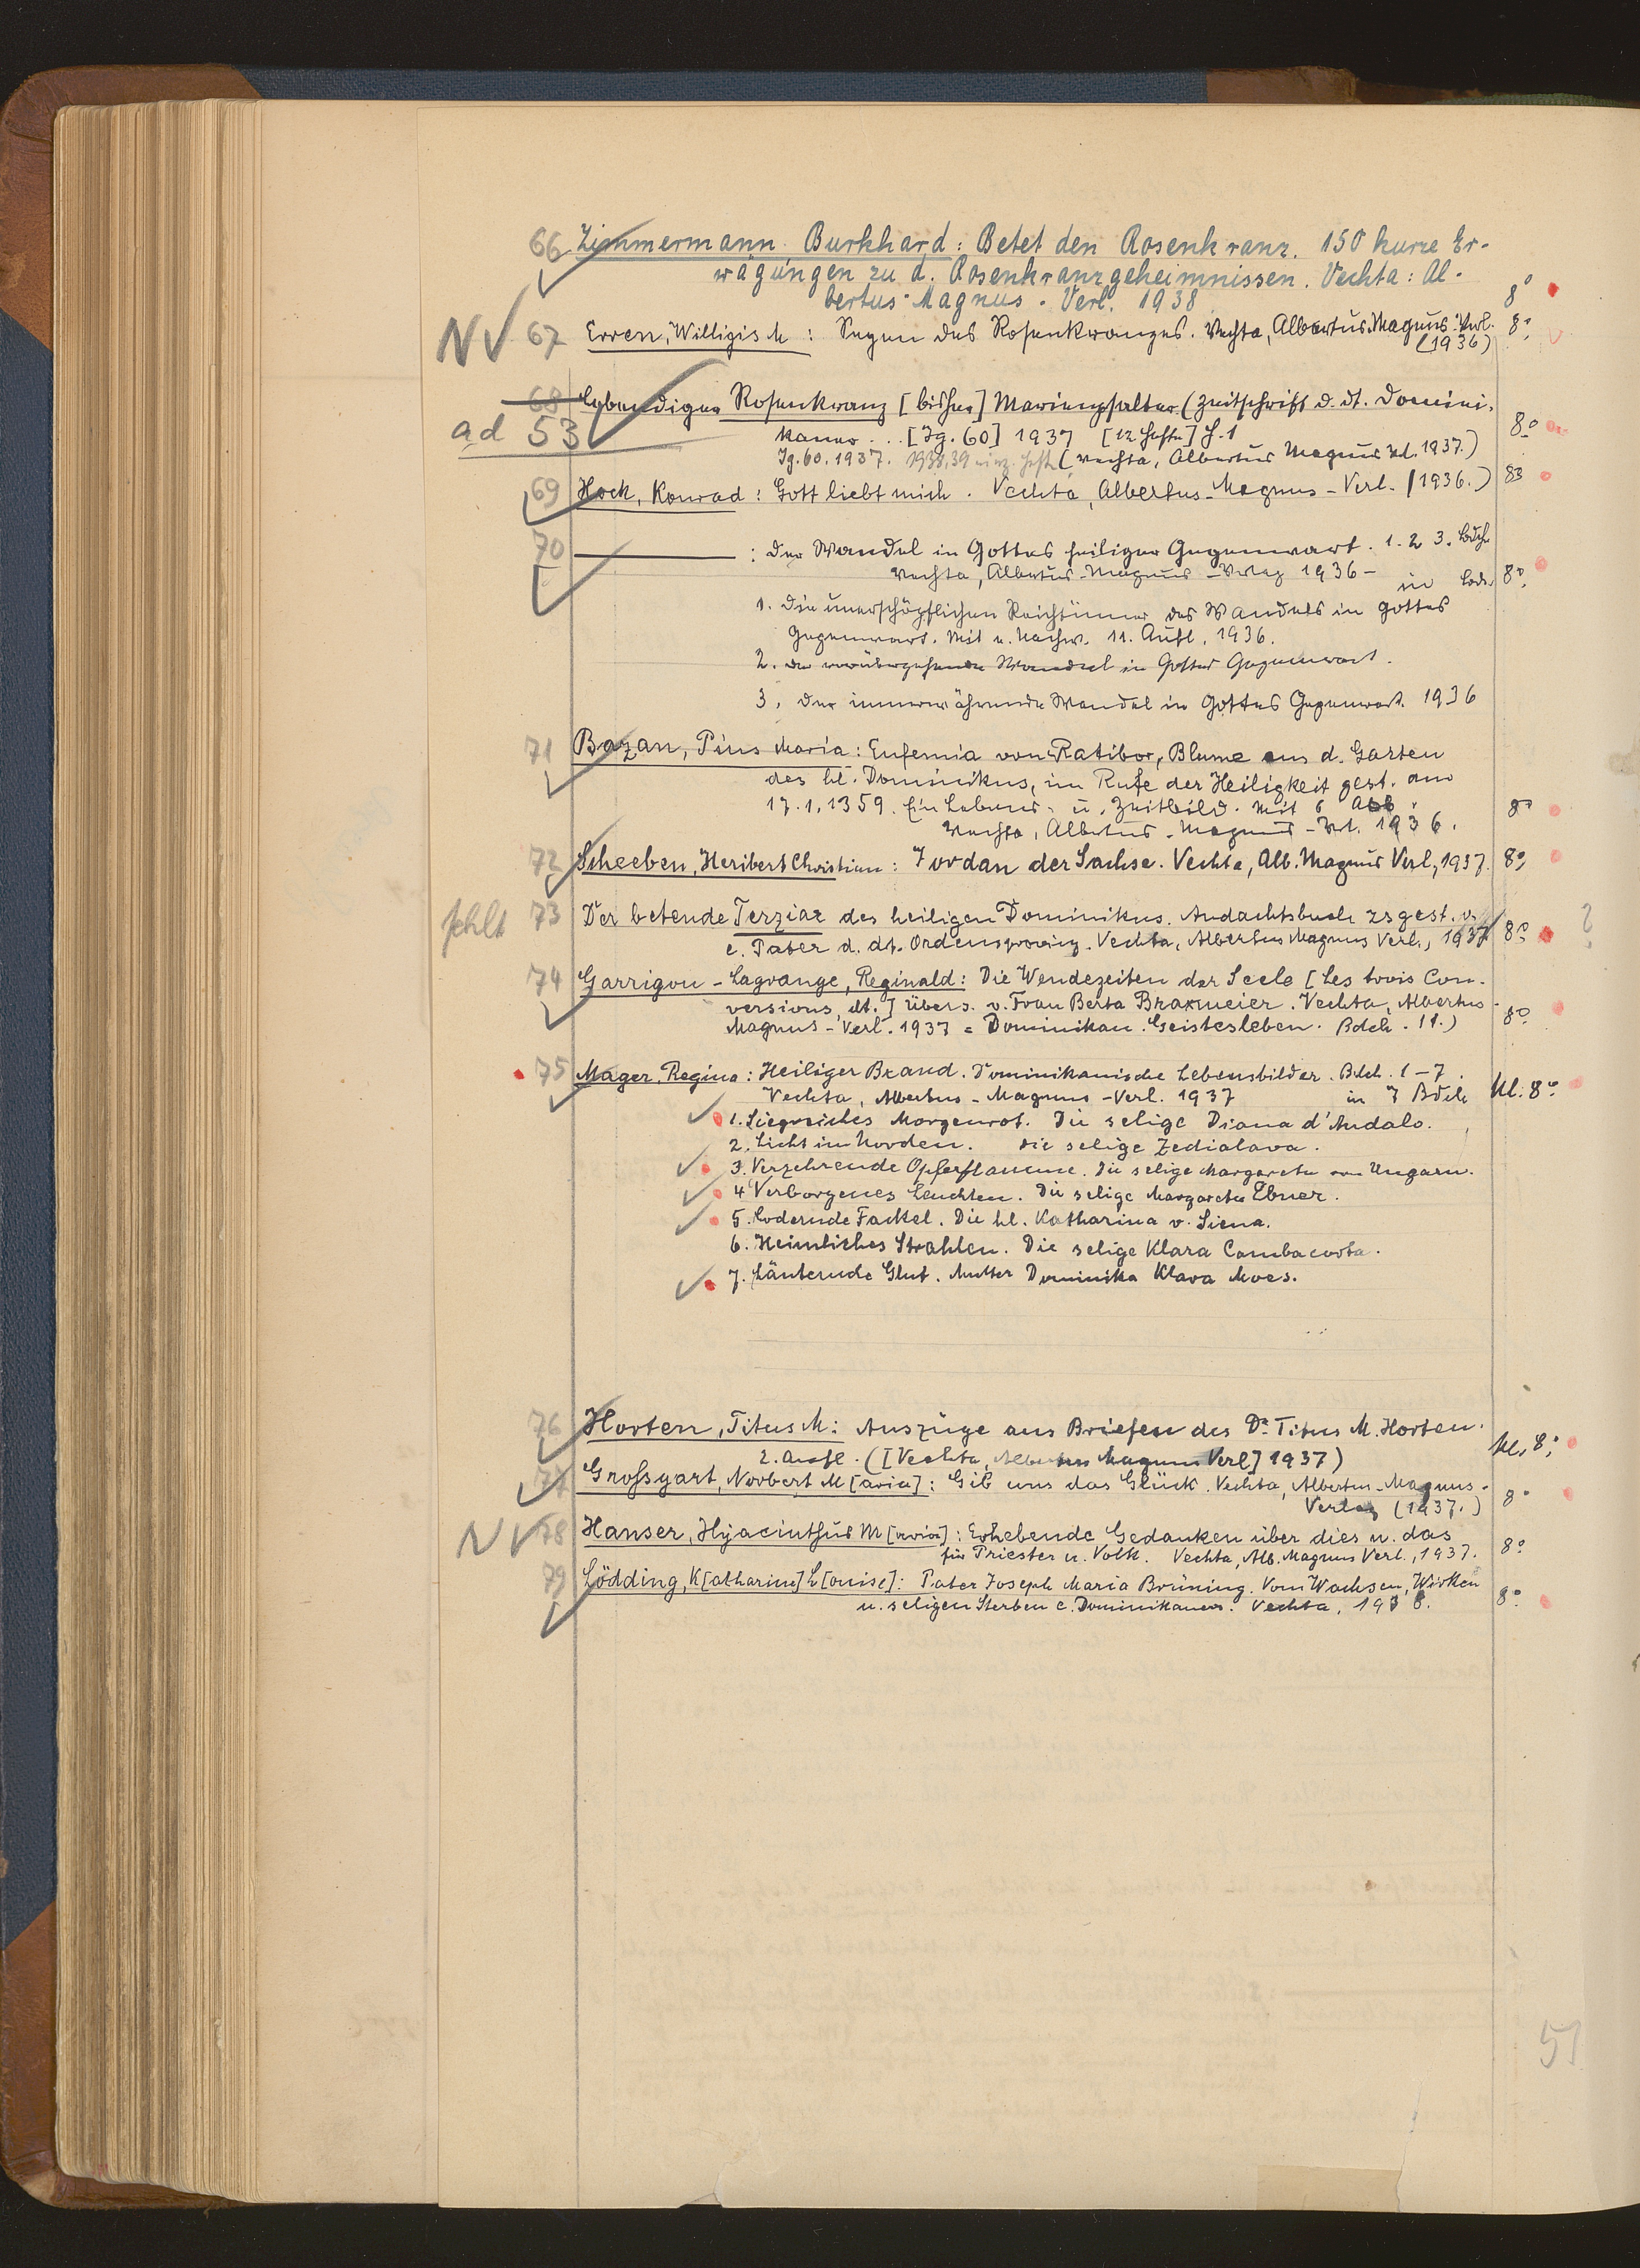 66 Zimmermann, Burkhard: Betet den Rosenkranz. 150 kurze Er-
wägungen zu d. Rosenkranzgeheimnissen. Vechta: Al-
bertus-Magnus-Verl. 1938 8°
NV 67 Erren, Willigis M: Segen des Rosenkranzes. Vechta, Albertus Magnus-Verl. 8°
(1936)
68 Lebendiger Rosenkranz [bisher] Marienpsalter (Zeitschrift d. dt. Domini-
ad 53 kaner... [Jg. 60] 1937 [12 Hefte] H. 1 8°
Jg. 60. 1937. 1938, 39 einz. Hefte (Vechta, Albertus Magnus Vl. 1937.)
69 Hock, Konrad: Gott liebt mich. Vechta, Albertus-Magnus-Verl. (1936.) 8°
70 ——— : Der Wandel in Gottes heiliger Gegenwart. 1. 2 3. Bdch.
Vechta, Albertus-Magnus-Verlag 1936- in Bdch. 8°
1. Die unerschöpflichen Reichtümer des Wandels in Gottes
Gegenwart. Mit e. Nachw. 11. Aufl. 1936.
2. Der vorübergehende Wandel in Gottes Gegenwart.
3. Der immerwährende Wandel in Gottes Gegenwart. 1936
71 Bazan, Pius Maria: Eufemia von Ratibor, Blume aus d. Garten
des hl. Dominikus, im Rufe der Heiligkeit gest. am
17.1.1359. Ein Lebens- u. Zeitbild. Mit 6 Abb. 8°
Vechta, Albertus-Magnus-Verl. 1936.
72 Scheeben, Heribert Christian: Jordan der Sachse. Vechta, Alb. Magnus Verl., 1937. 8°
fehlt 73 Der betende Terziar des heiligen Dominikus. Andachtsbuch zsgest. v. ?
e. Pater d. dt. Ordensprovinz. Vechta, Albertus Magnus Verl., 1937 8°
74 Garrigou-Lagrange, Reginald: Die Wendezeiten der Seele [Les trois Con-
versions, dt.] Übers. v. Frau Berta Braxmeier. Vechta, Albertus-
Magnus-Verl. 1937 = Dominikan. Geistesleben. Bdch. 11.) 8°
75 Mager, Regina: Heiliger Brand. Dominikanische Lebensbilder. Bdch. 1-7.
Vechta, Albertus-Magnus-Verl. 1937 in 7 Bdch kl. 8°
1. Siegreiches Morgenrot. Die selige Diana d'Andalo.
2. Licht im Norden. Die selige Zedialava.
3. Verzehrende Opferflamme. Die selige Margareta von Ungarn.
4 Verborgenes Leuchten. Die selige Margareta Ebner.
5. Lodernde Fackel. Die hl. Katharina v. Siena.
6. Heimliches Strahlen. Die selige Klara Gambacorta.
7. Läuternde Glut. Mutter Dominika Klara Moes.
76 Horten, Titus M: Auszüge aus Briefen des Dr. Titus M. Horten.
2. Aufl. ([Vechta, Albertus Magnus Verl] 1937) kl. 8°
77 Grossgart, Norbert M[aria]: Gib uns das Glück. Vechta, Albertus-Magnus-
Verlag (1937.) 8°
NV 78 Hanser, Hyacinthus M[aria]: Erhebende Gedanken über dies u. das
für Priester u. Volk. Vechta, Alb. Magnus Verl., 1937. 8°
79 Lödding, K[atharina] L[ouise]: Pater Joseph Maria Brüning. Vom Wachsen, Wirken
u. seligen Sterben e. Dominikaners. Vechta, 1938. 8°
51